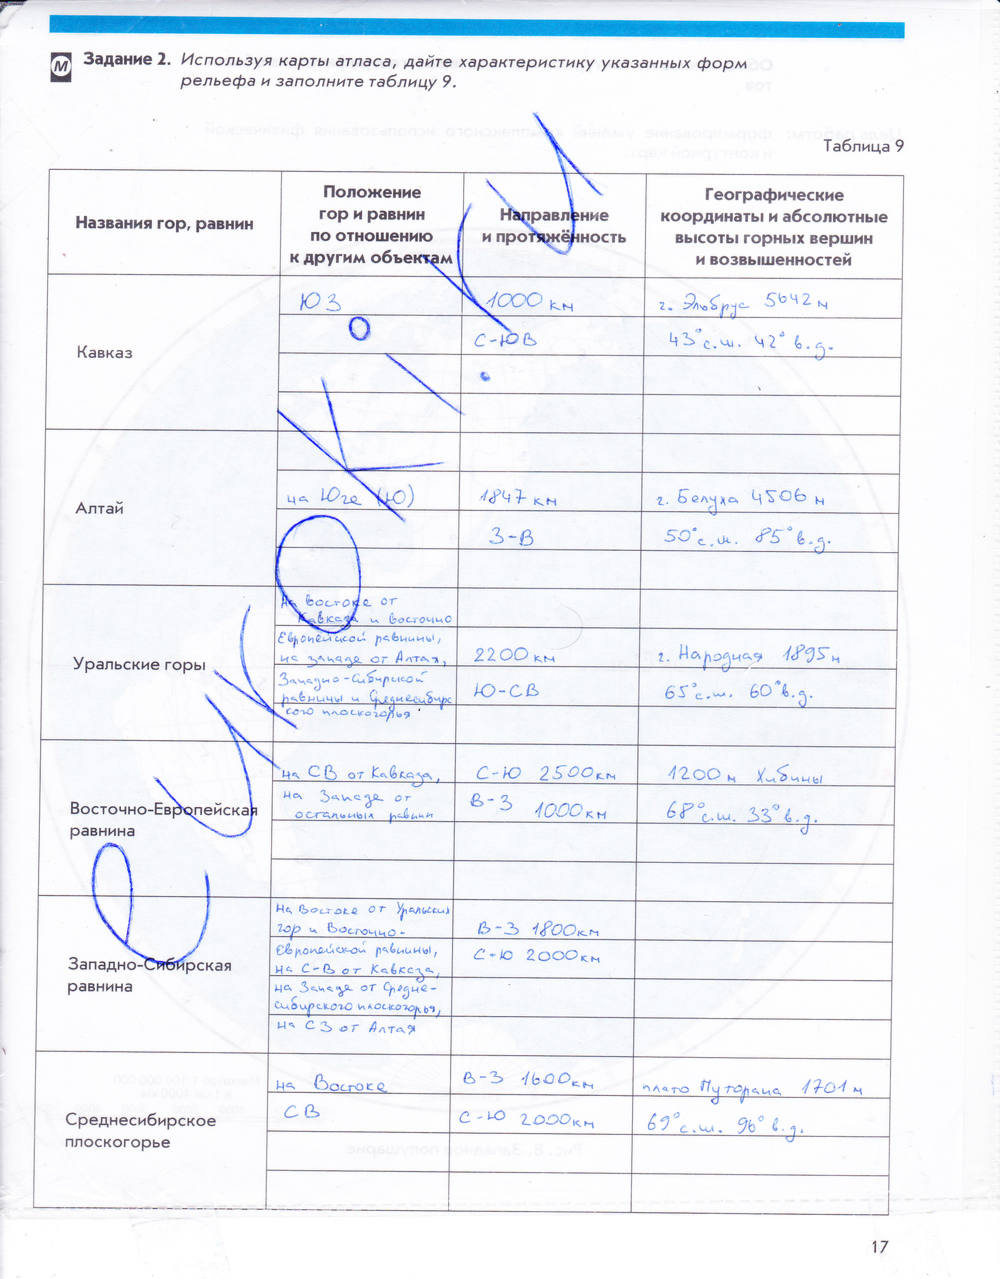 М
Задание 2. Используя карты атласа, дайте характеристику указанных форм
рельефа и заполните таблицу 9.
Таблица 9
Названия гор, равнин
Положение
гор и равнин
по отношению
к другим объектам
Направление
и протяжённость
Географические
координаты и абсолютные
высоты горных вершин
и возвышенностей
Кавказ
ЮЗ
1000 км
г. Эльбрус 5642 м
С-ЮВ
43° с.ш. 42° в.д.
Алтай
на Юге (Ю)
1847 км
г. Белуха 4506 м
З-В
50° с.ш. 85° в.д.
Уральские горы
на востоке от
Кавказа и восточно
Европейской равнины,
на западе от Алтая,
Западно-Сибирской
равнины и Среднесибирс
ского плоскогорья
2200 км
г. Народная 1895 м
Ю-СВ
65° с.ш. 60° в.д.
Восточно-Европейская
равнина
на СВ от Кавказа,
на Западе от
остальных равнин
С-Ю 2500 км
В-З 1000 км
1200 м Хибины
68° с.ш. 33° в.д.
Западно-Сибирская
равнина
на Востоке от Уральских
гор и Восточно-
Европейской равнины,
на С-В от Кавказа,
на Западе от Средне-
сибирского плоскогорья,
на СЗ от Алтая
В-З 1800 км
С-Ю 2000 км
Среднесибирское
плоскогорье
на Востоке
СВ
В-З 1600 км
С-Ю 2000 км
плато Путорана 1701 м
69° с.ш. 96° в.д.
17